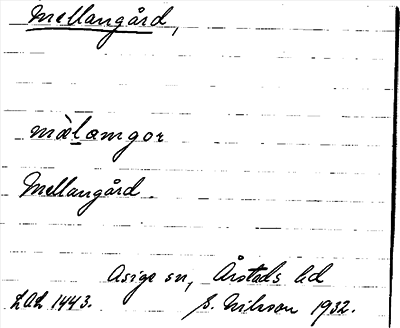 Mellangård,
mæ̀læmgor
Mellangård.
Asige sn, Årstads hd
LAL 1443. S. Nilsson 1932.